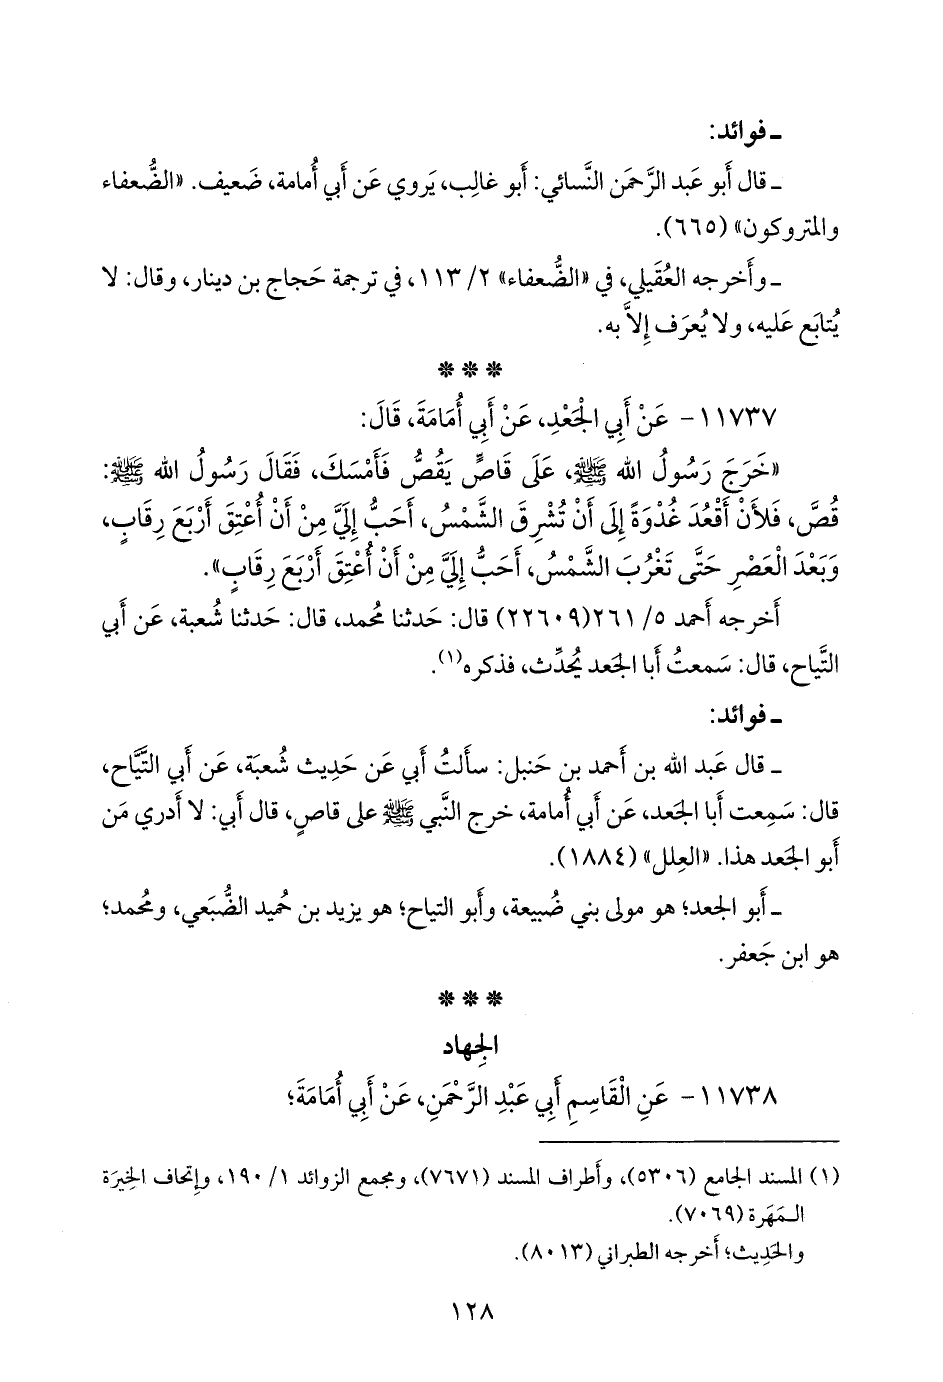 ـ فوائد:
ـ قال أَبو عَبد الرَّحمَن النَّسائي: أَبو غالِب، يَروي عَن أَبي أُمامة، ضَعيف. «الضُّعفاء
والمتروكون» (٦٦٥).
ـ وأَخرجه العُقَيلي، في «الضُّعفاء» ٢/ ١١٣، في ترجمة حَجاج بن دينار، وقال: لا
يُتابَع عَليه، ولا يُعرَف إِلاَّ به.
* * *
١١٧٣٧- عَنْ أَبِي الْجَعْدِ، عَنْ أَبِي أُمَامَةَ، قَالَ:
«خَرَجَ رَسُولُ الله ﷺ، عَلَى قَاصٍّ يَقُصُّ فَأَمْسَكَ، فَقَالَ رَسُولُ الله ﷺ:
قُصَّ، فَلأَنْ أَقْعُدَ غُدْوَةً إِلَى أَنْ تُشْرِقَ الشَّمْسُ، أَحَبُّ إِلَيَّ مِنْ أَنْ أُعْتِقَ أَرْبَعَ رِقَابٍ،
وَبَعْدَ الْعَصْرِ حَتَّى تَغْرُبَ الشَّمْسُ، أَحَبُّ إِلَيَّ مِنْ أَنْ أُعْتِقَ أَرْبَعَ رِقَابٍ».
أَخرجه أَحمد ٥/ ٢٦١(٢٢٦٠٩) قال: حَدثنا مُحمد، قال: حَدثنا شُعبة، عَن أَبي
التَّياح، قال: سَمعتُ أَبا الجَعد يُحدِّث، فذكره(١).
ـ فوائد:
ـ قال عَبد الله بن أَحمد بن حَنبل: سأَلتُ أَبي عَن حَديث شُعبَة، عَن أَبي التَّيَّاح،
قال: سَمِعت أَبا الجَعد، عَن أَبي أُمامة، خرج النَّبي ﷺ على قاصٍ، قال أَبي: لا أَدري مَن
أَبو الجَعد هذا. «العِلل» (١٨٨٤).
ـ أَبو الجَعد؛ هو مولى بني ضُبيعة، وأَبو التياح؛ هو يزيد بن حُميد الضُّبَعي، ومُحمد؛
هو ابن جَعفر.
* * *
الجِهاد
١١٧٣٨- عَنِ الْقَاسِمِ أَبِي عَبْدِ الرَّحْمَنِ، عَنْ أَبِي أُمَامَةَ؛
(١) المسند الجامع (٥٣٠٦)، وأَطراف المسند (٧٦٧١)، ومجمع الزوائد ١/ ١٩٠، وإِتحاف الخِيرَة
الـمَهَرة (٧٠٦٩).
والحَدِيث؛ أَخرجه الطبراني (٨٠١٣).
١٢٨